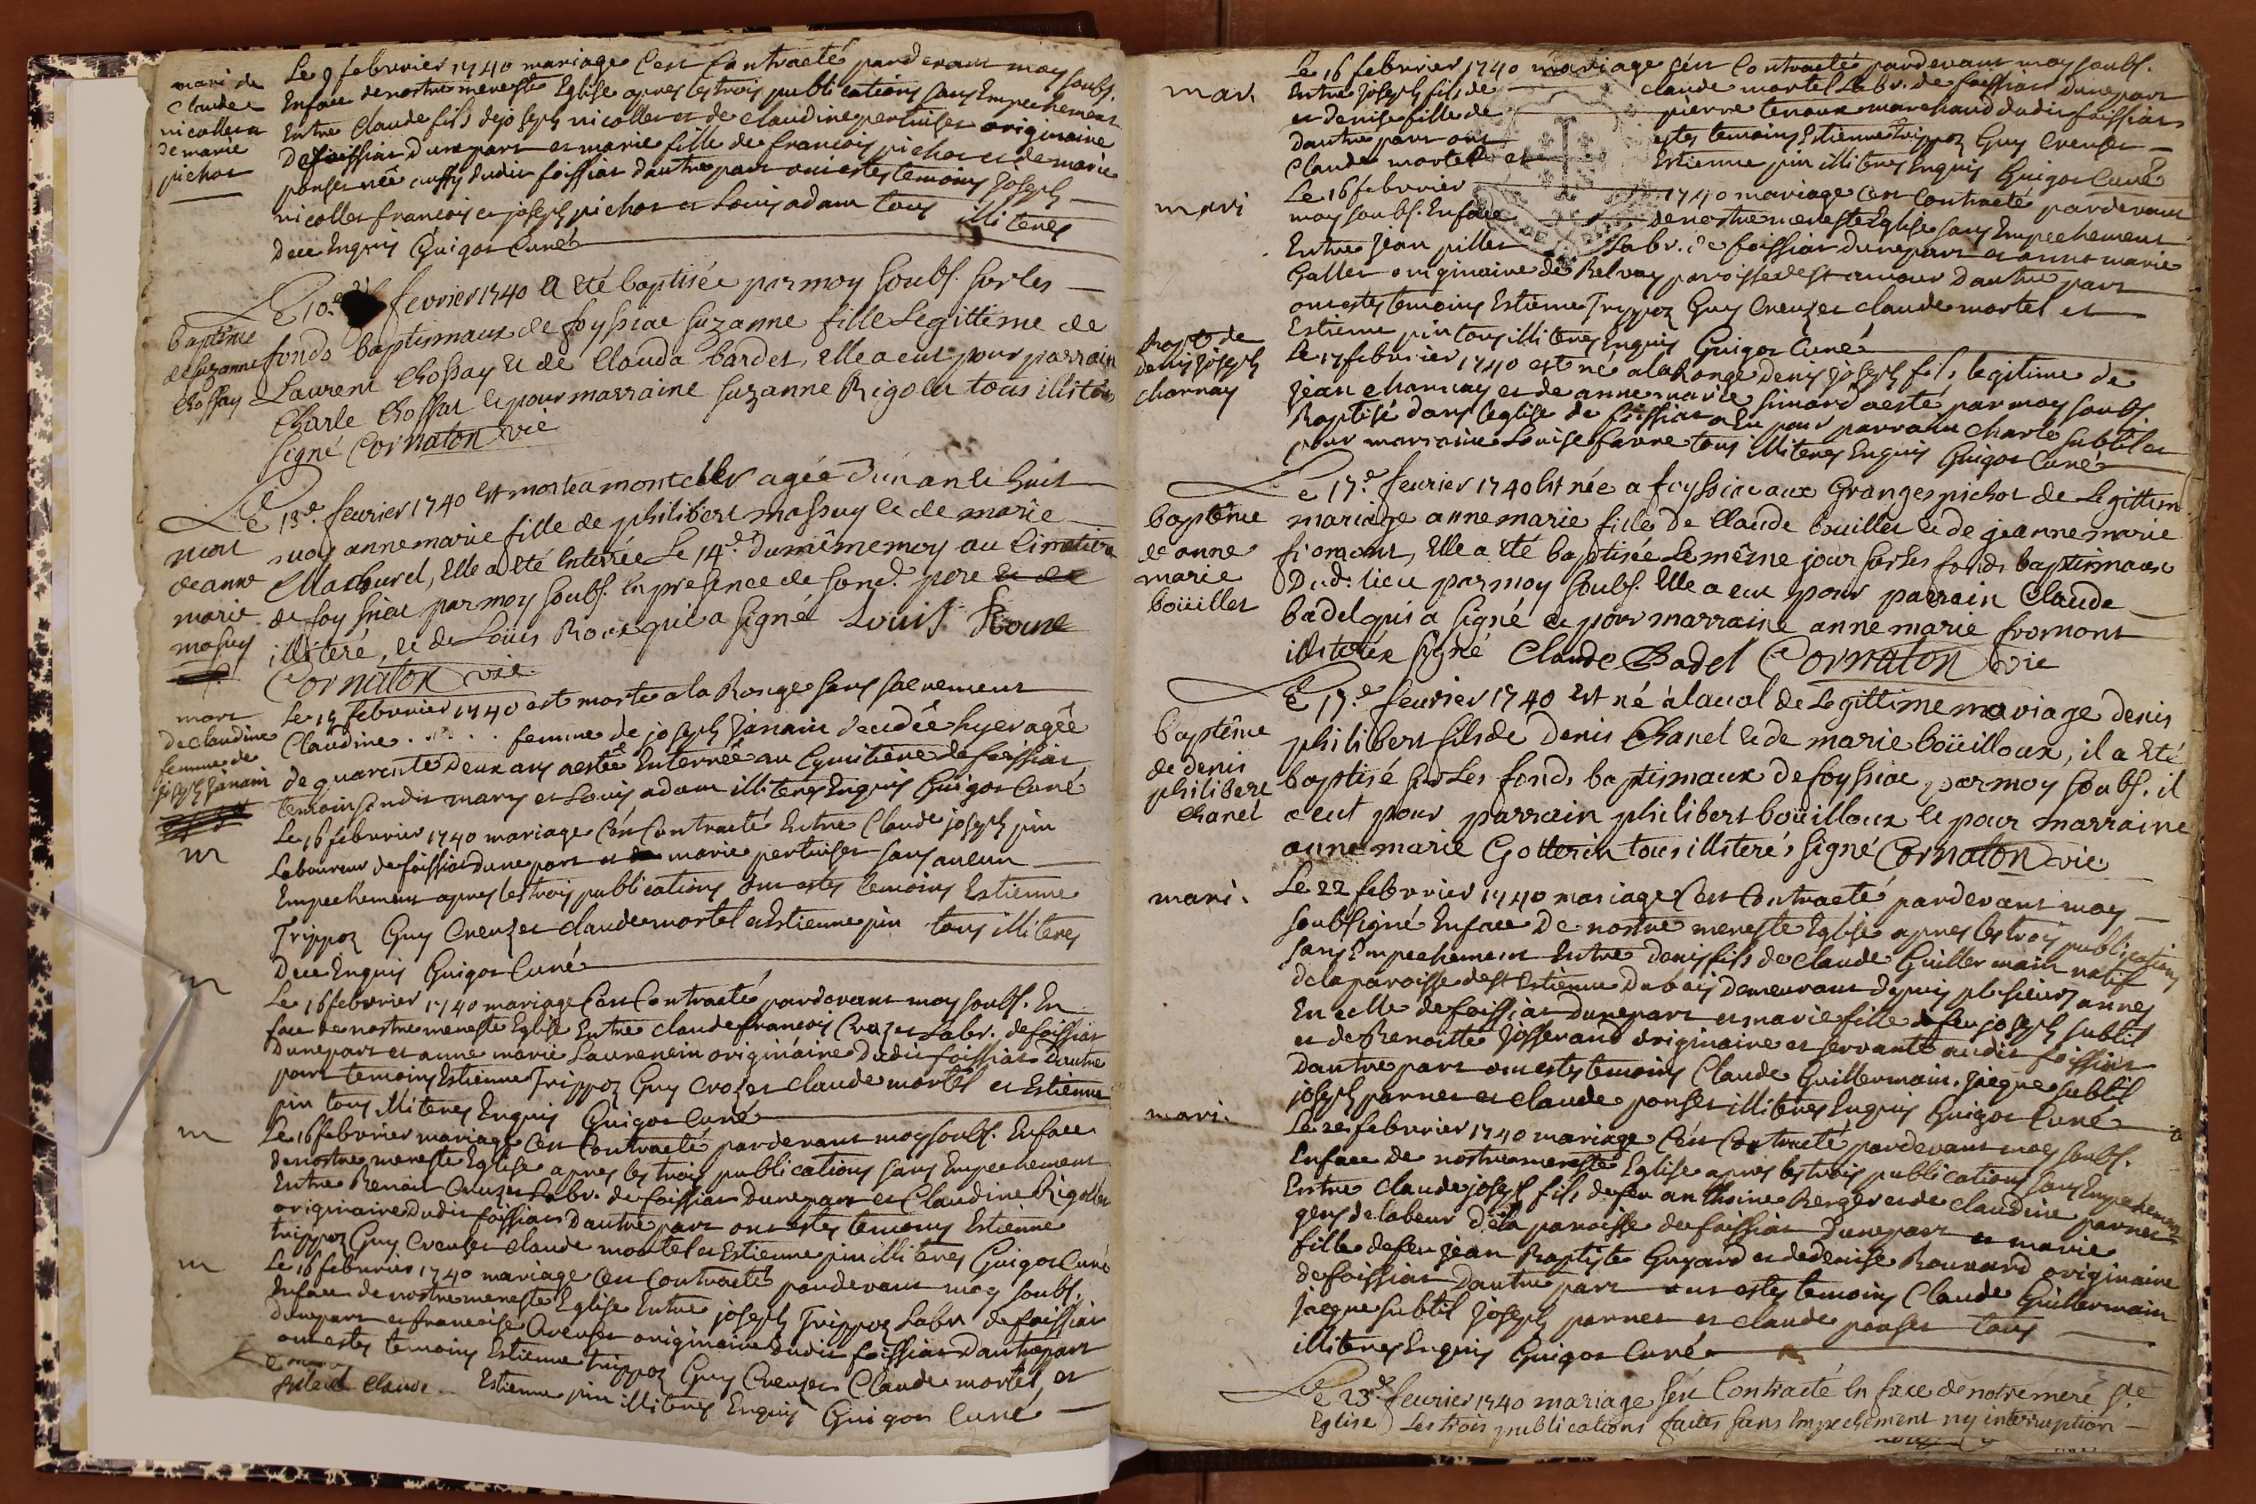 mari de
Claude
nicollet a
de marie
pichot
Le 9 febvrier 1740 mariage c'est Contracté pardevant moy soubs.
Enface de nostre mereste Eglise apres les trois publications sans Empechement
Entre Claude fils de joseph nicollet et de claudine pertuiset originaire
de foissiat d'une part et marie fille de francois pichot et de marie
ponset née aussy dudit foissiat d'autre part ont estes temoins joseph
nicollet francois et joseph pichot et Louis adam tous illiteres
dece Enquis Guigot Curé
baptême
de suzanne
Chossay
Le 10e fevrier 1740 a eté baptisée par moy soubs. sur les
fonds baptismaux de foyssiac suzanne fille Legittime de
Laurent Chossay et de Clauda bardet, elle a eut pour parrain
Charle Chossat et pour marraine suzanne Rigolu tous illiterés
signé Cornaton vic
mort
de anne
marie
massuy
Le 13e. fevrier 1740 est morte a montcler agée d'un an et huit
mois anne marie fille de philibert massuy et de marie
Machurel, elle a eté enterée Le 14e. du même moy au Cimetiere
de foyssiac par moy soubs. en presence de sond. pere et de
illiteré, et de Loüis Roux qui a signé Louis Roux
Cornaton vic
mort
de claudine
femme de
joseph janain
Le 15 febvrier 1740 est morte a la Ronge sans sacrement
Claudine . . . . femme de joseph janain decedée hyer agée
de quarente deux ans a esté Enterrée au Cymitiere de foissiat
temoins sondit mary et Louis adam illiteres Enquis Guigot Curé
m
Le 16 febvrier 1740 mariage c'est Contracté Entre Claude joseph pin
Laboureur de foissiat d'une part et marie pertuiset sans aucun
Empechement apres les trois publications ont estes temoins Estienne
Trippoz Guy Creuzet claude mortel et Estienne pin tous illiteres
dece Enquis Guigot Curé
m
Le 16 febvrier 1740 mariage c'est Contracté pardevant moy soubs. En
face de nostre mereste Eglise Entre claude francois Crozet Labr. de foissiat
d'une part et anne marie Laurencin originaire dudit foissiat d'autre
part temoins Estienne Trippoz Guy Crozet claude mortel et Estienne
pin tous illiteres Enquis Guigot Curé
m
Le 16 febvrier mariage c'est Contracté pardevant moy soubs. Enface
de nostre mereste Eglise apres les trois publications sans Empechement
Entre Benoit Creuzet Labr. de foissiat d'une part et Claudine Rigollet
originaire dudit foissiat d'autre part ont estes temoins Estienne
trippoz Guy Creuzet claude mortel et Estienne pin illiteres Guigot Curé
m
Le 16 febvrier 1740 mariage c'est Contracté pardevant moy soubs.
Enface de nostre mereste Eglise Entre joseph Trippoz Labr. de foissiat
d'une part et francoise Creuset originaire dudit foissiat d'autre part
ont estes temoins Estienne trippoz Guy Creuzet Claude mortel et
Estienne pin illiteres Enquis Guigot Curé
mari
Le 16 febvrier 1740 mariage c'est Contracté pardevant moy soubs.
Entre joseph fils de claude mortel Labr. de foissiat d'une part
et denise fille de pierre tenoux marchand dudit foissiat
d'autre part ont estes temoins Estienne trippoz Guy Creuset
Claude mortel et Estienne pin illiteres Enquis Guigot Curé
mari
Le 16 febvrier 1740 mariage c'est Contracté pardevant
moy soubs. Enface de nostre mereste Eglise sans Empechement
Entre jean pillet Labr. de foissiat d'une part et anne marie
Gallet originaire de Belvey paroisse de st amour d'autre part
ont estes temoins Estienne Trippoz Guy Creuzet claude mortel et
Estienne pin tous illiteres Enquis Guigot Curé
Bapt. de
denis joseph
charnay
Le 17 febvrier 1740 est né a la Ronge denis joseph fils legitime de
jean charnay et de anne marie simard a esté par moy soubs.
Baptisé dans l'eglise de foissiat a Eu pour parrain charle subtil et
pour marraine Louise favre tous illiteres Enquis Guigot Curé
baptême
de anne
marie
boüillet
Le 17e. fevrier 1740 est née a foyssiac aux Granges pichot de Legittim
mariage anne marie fille de Claude bouillet et de jeanne marie
fromont, elle a eté baptisée le même jour sur les fonds baptismaux
dud. lieu par moy soubs. elle a eut pour parrain Claude
badel qui a signé et pour marraine anne marie fromont
illiterée signé Claude Badel Cornaton vic
baptême
de denis
philibert
Chanel
Le 17e. fevrier 1740 est né à laval de Legittime mariage denis
philibert fils de denis Chanel et de marie boüilloux, il a eté
baptisé sur Les fonds baptismaux de foyssiac, par moy soubs. il
a eut pour parrain philibert boüilloux et pour marraine
anne marie Gotterin tous illiterés signé Cornaton vic
mari.
Le 22 febvrier 1740 mariage c'est Contracté pardevant moy
soubsigné Enface de nostre mereste Eglise apres les trois publications
sans Empechement Entre denis fils de claude Guillermain natif
de la paroisse de st Estienne du bois demeurant depuis plusieurs annes
En celle de foissiat d'une part et marie fille de feu joseph subtil
et de Benoitte josserand originaire et servante audit foissiat
d'autre part ont estes temoins Claude Guillermain. jacque subtil
joseph parnet et claude ponset illiteres Enquis Guigot Curé
mari.
Le 22 febvrier 1740 mariage c'est Contracté pardevant moy soubs.
Enface de nostre mereste Eglise apres les trois publications sans Empechement
Entre claude joseph fils de feu anthoine Berger et de claudine parnet
gens de labeur de la paroisse de foissiat d'une part et marie
fille de feu jean Baptiste Guyard et de denise Bouvard originaire
de foissiat d'autre part ont estes temoins Claude Guillermain
jacque subtil joseph parnet et claude ponset tous
illiteres Enquis Guigot Curé
Le 23e. fevrier 1740 mariage s'est Contracté en face de notre mere ste.
Eglise) Les trois publications faites sans empechement ny interruption